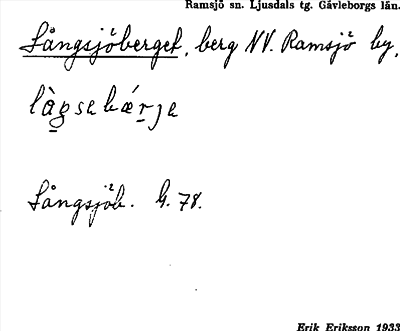 Ramsjö sn. Ljusdals tg. Gävleborgs län.
Långsjöberget, berg NV. Ramsjö by,
Långsjöb. G. 78.
Erik Eriksson 1933